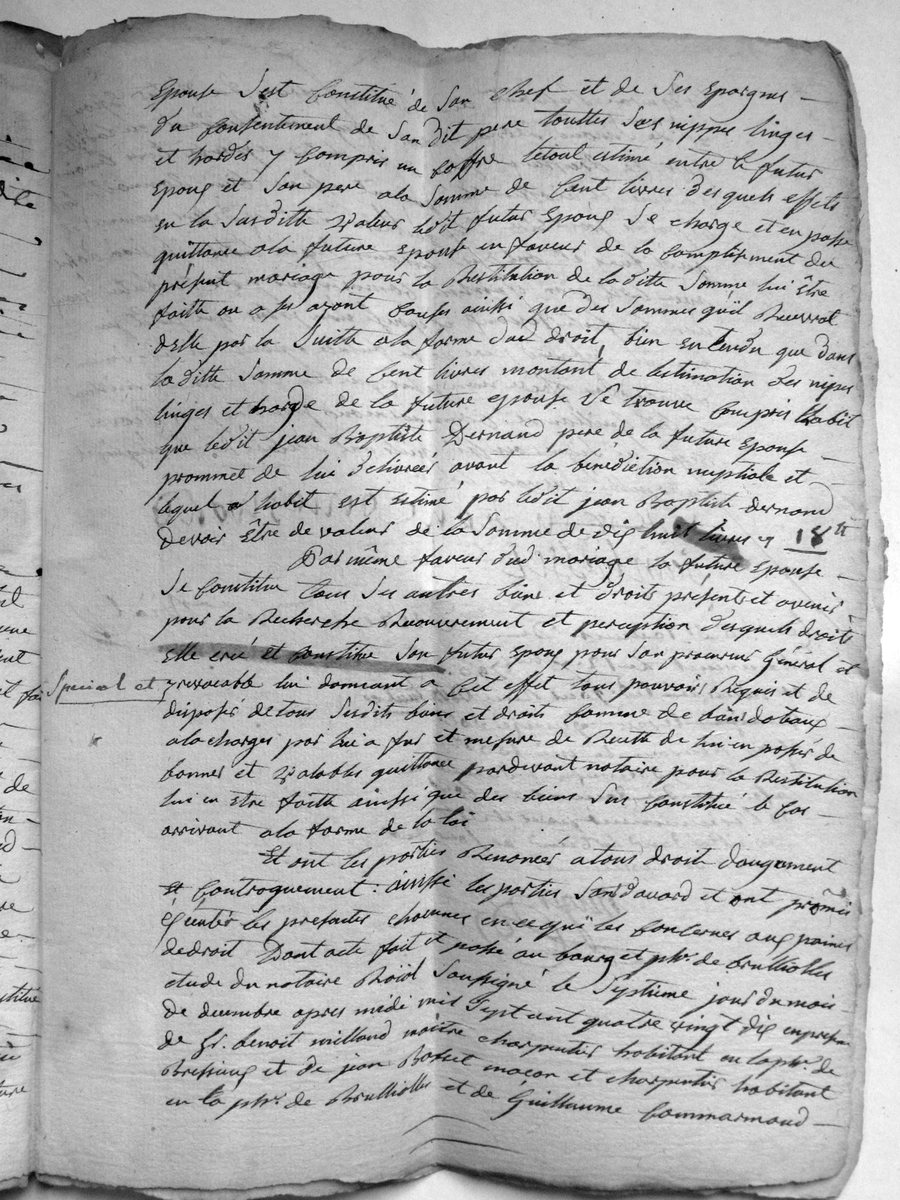 Epouse S'est Constitué de Son chef et de Ses Epargnes —
du Consentement de Son dit pere touttes Ses nippes linges —
et hardes y Compris un coffre letout estimé entre le futur
Epoux et Son pere ala Somme de Cent livres desquels effets
en la Susditte valeur ledit futur Epoux Se charge et en passe
quittance ala future epouse en faveur de la Complisement du
présent mariage pour la Restitution de laditte Somme lui Être
faitte ou a ses ayant Causes ainsi que des Sommes qu'il Recevrat
delle par la Suitte ala forme du droit, bien entendu que dans
laditte Somme de Cent livres montant de lestimation des nipes
linges et harde de la future epouse Se trouve Compris habit
que ledit jean Baptiste Dernand pere de la future Epouse —
prommet de lui délivrée avant la bénédiction nuptiale et
lequel habit est estimé par ledit jean Baptiste dernand
devoir être de valeur de la Somme de dix huit livres cy 18 tt
Par même faveur dud mariage la future Epouse —
Se Constitue tous Ses autres biens et droits présents et avenir
pour la Recherche Recouvrement et perception desquels droits
Elle crée et Constitue Son futur Epoux pour Son procureur Général et
Special et yrevocable lui donnant a Cet effet tous pouvoirs Requis et de
disposé de tous Susdits biens et droits Comme de biens dotaux —
ala charges par lui a fur et mesure de Recette de lui en passer de
bonnes et valables quittance pardevant notaire pour la Restitution
lui en être faitte ainsi que des biens Sus Constitué le Cas —
arrivant ala forme de la loi
Et ont les parties Renoncés a tous droit daugment
et Contraugment : ainssi les parties Sont daccord et ont promis
Éxécuter les présentes chacunes en ce qui les Concernes aux paines
de droit Dont acte fait et passé au bourg et phe. de brullioles
etude du notaire Soussigné le Septieme jour du mois —
de decembre apres midi mil Sept cent quatre vingt dix en presence
de Sr. benoit millaud maitre charpentier habitant en la phe. de
Bressieux et de jean maçon et charpentier habitant
en la phe. de Brullioles et de Guillaume Commarmond —